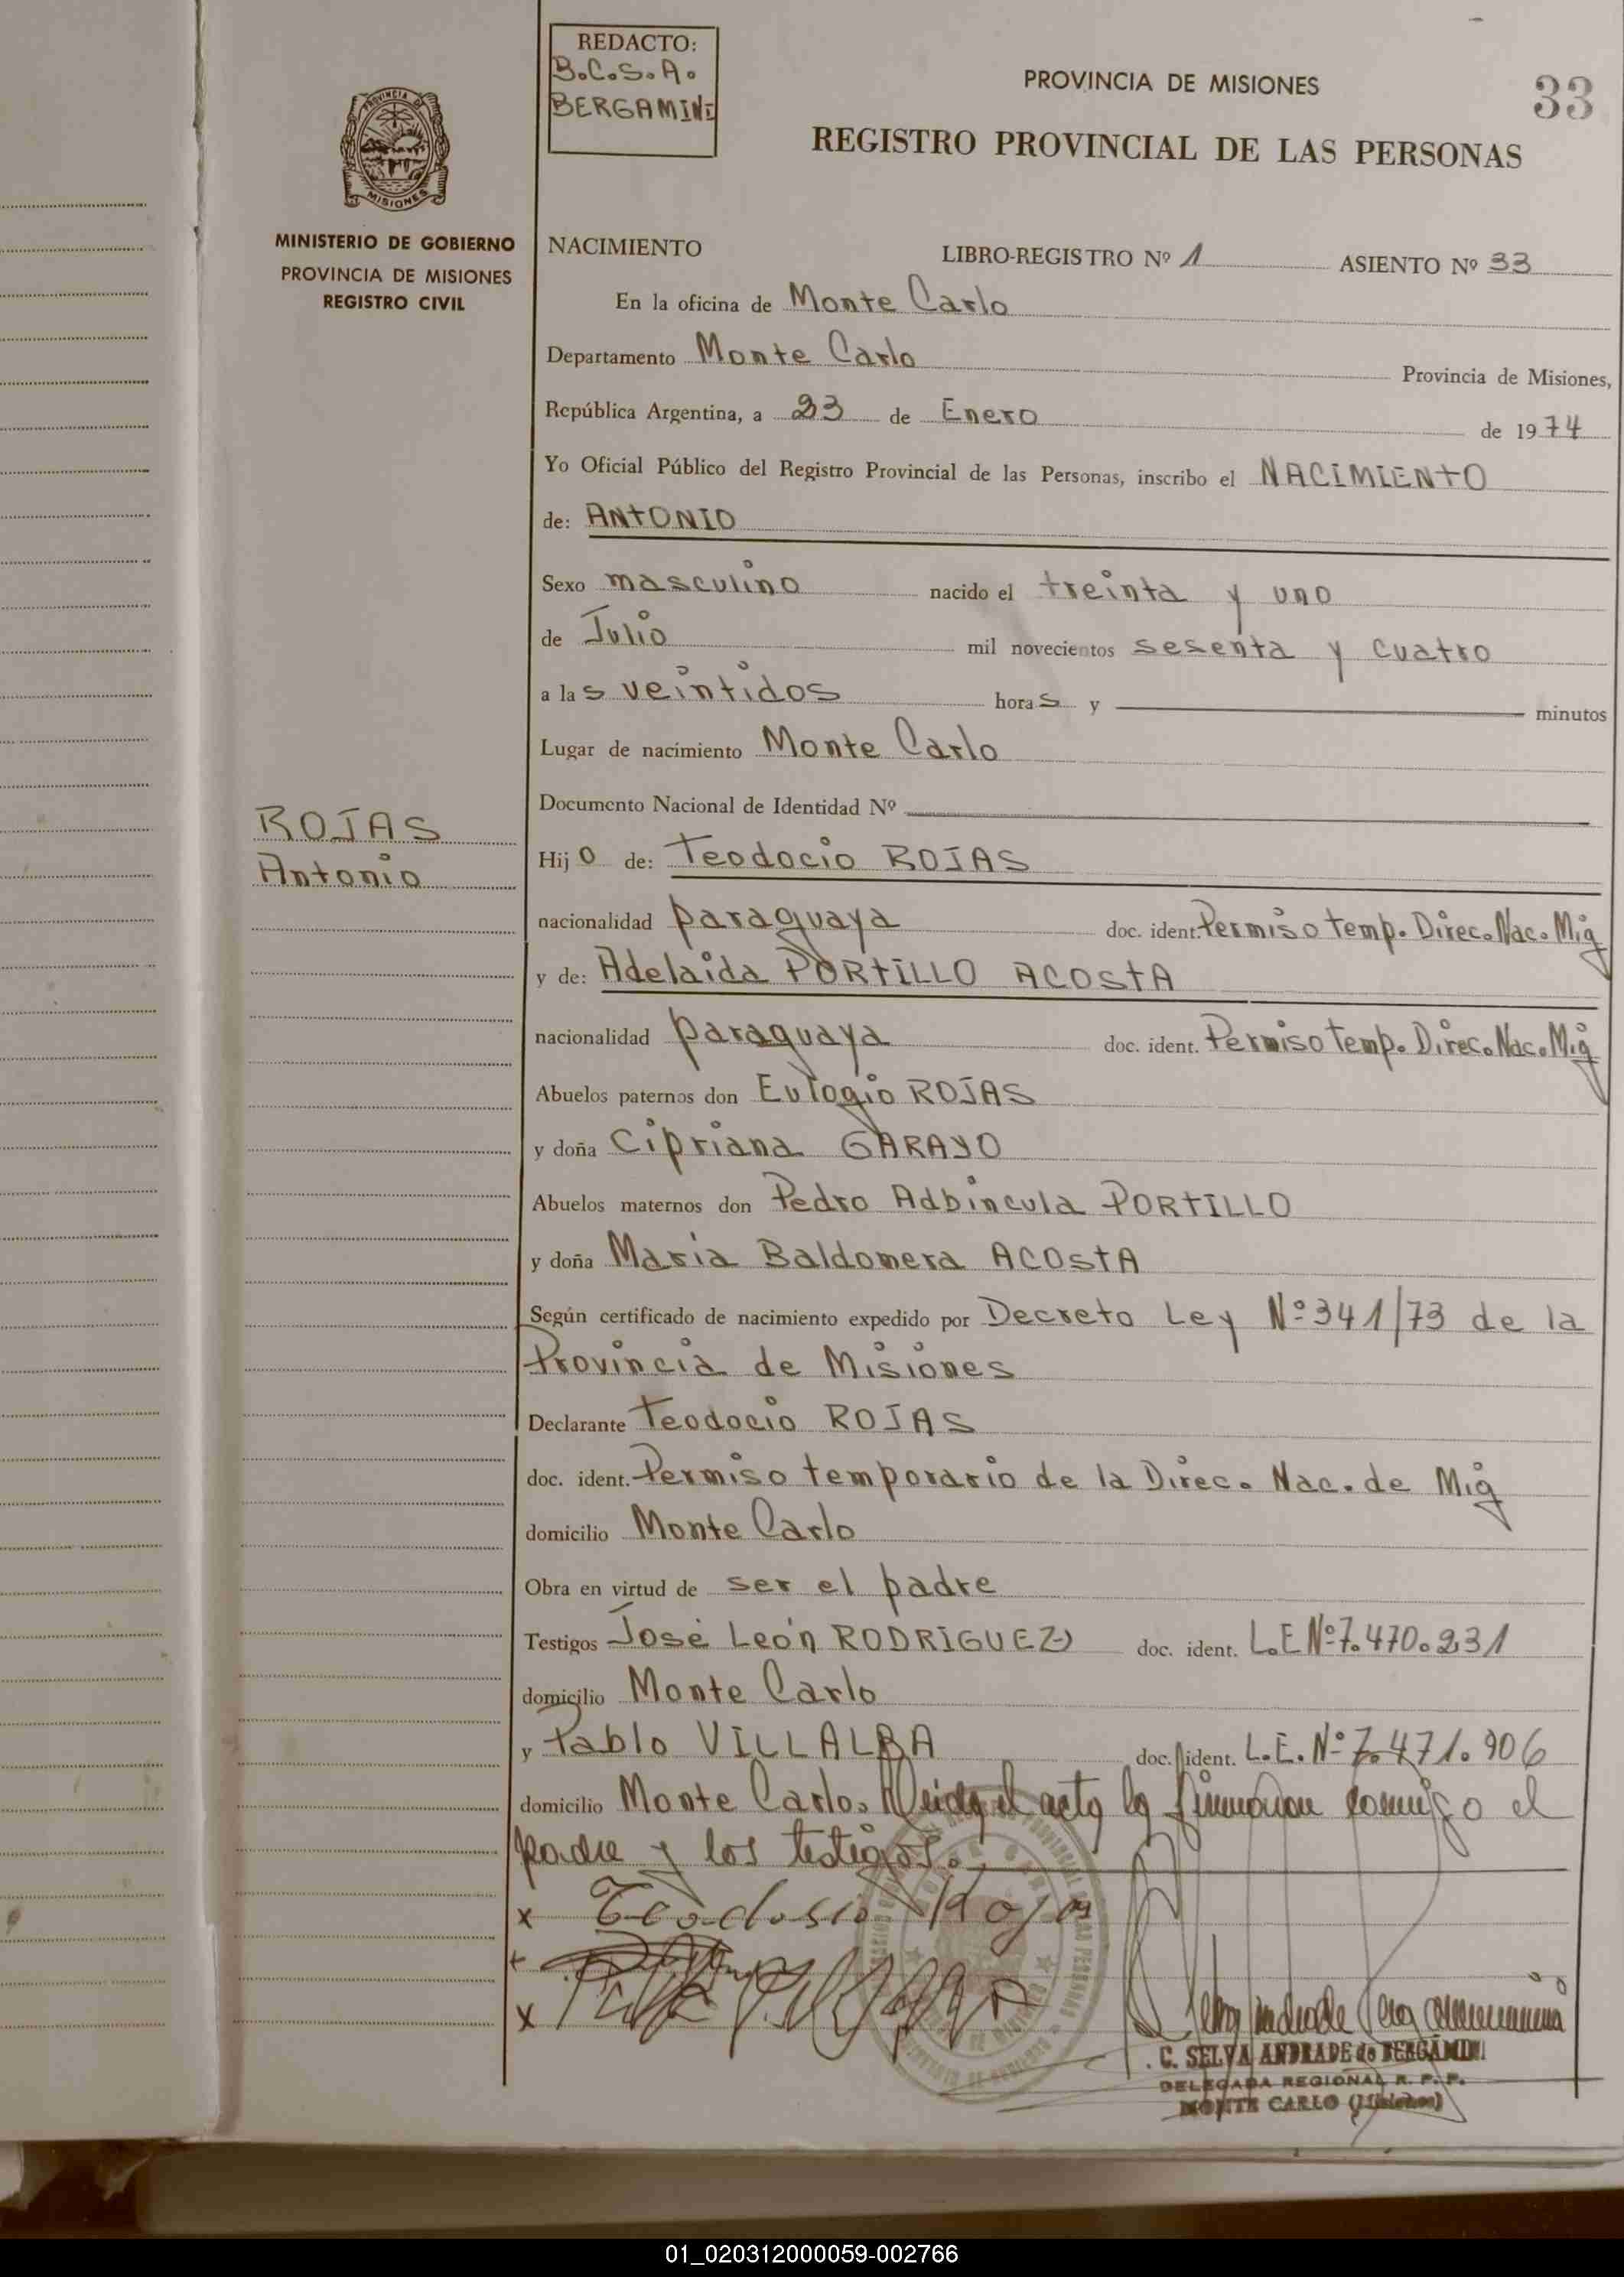 REDACTO:
B.C.S.A.
BERGAMINI
PROVINCIA DE MISIONES
33
REGISTRO PROVINCIAL DE LAS PERSONAS
PROVINCIA DE
MISIONES
MINISTERIO DE GOBIERNO
PROVINCIA DE MISIONES
REGISTRO CIVIL
NACIMIENTO LIBRO-REGISTRO Nº 1 ASIENTO Nº 33
En la oficina de Monte Carlo
Departamento Monte Carlo Provincia de Misiones,
República Argentina, a 23 de Enero de 1974
Yo Oficial Público del Registro Provincial de las Personas, inscribo el NACIMIENTO
de: ANTONIO
Sexo masculino nacido el treinta y uno
de Julio mil novecientos sesenta y cuatro
a las veintidos horas y minutos
Lugar de nacimiento Monte Carlo
Documento Nacional de Identidad Nº
ROJAS
Antonio
Hijo de: Teodocio ROJAS
nacionalidad paraguaya doc. ident. Permiso temp. Direc. Nac. Mig
y de: Adelaida PORTILLO ACOSTA
nacionalidad paraguaya doc. ident. Permiso temp. Direc. Nac. Mig
Abuelos paternos don Eulogio ROJAS
y doña Cipriana GARAYO
Abuelos maternos don Pedro Adbincula PORTILLO
y doña Maria Baldomera ACOSTA
Según certificado de nacimiento expedido por Decreto Ley Nº 341/73 de la
Provincia de Misiones
Declarante Teodocio ROJAS
doc. ident. Permiso temporario de la Direc. Nac. de Mig
domicilio Monte Carlo
Obra en virtud de ser el padre
Testigos José León RODRIGUEZ doc. ident. L.E Nº 7.470.231
domicilio Monte Carlo
y Pablo VILLALBA doc. ident. L.E. Nº 7.471.906
domicilio Monte Carlo. Leida el acta la firmaron conmigo el
padre y los testigos.
x Teodosio Rojas
x
C. SELVA ANDRADE de BERGAMINI
DELEGADA REGIONAL R. P. P.
MONTE CARLO (Misiones)
01_020312000059-002766